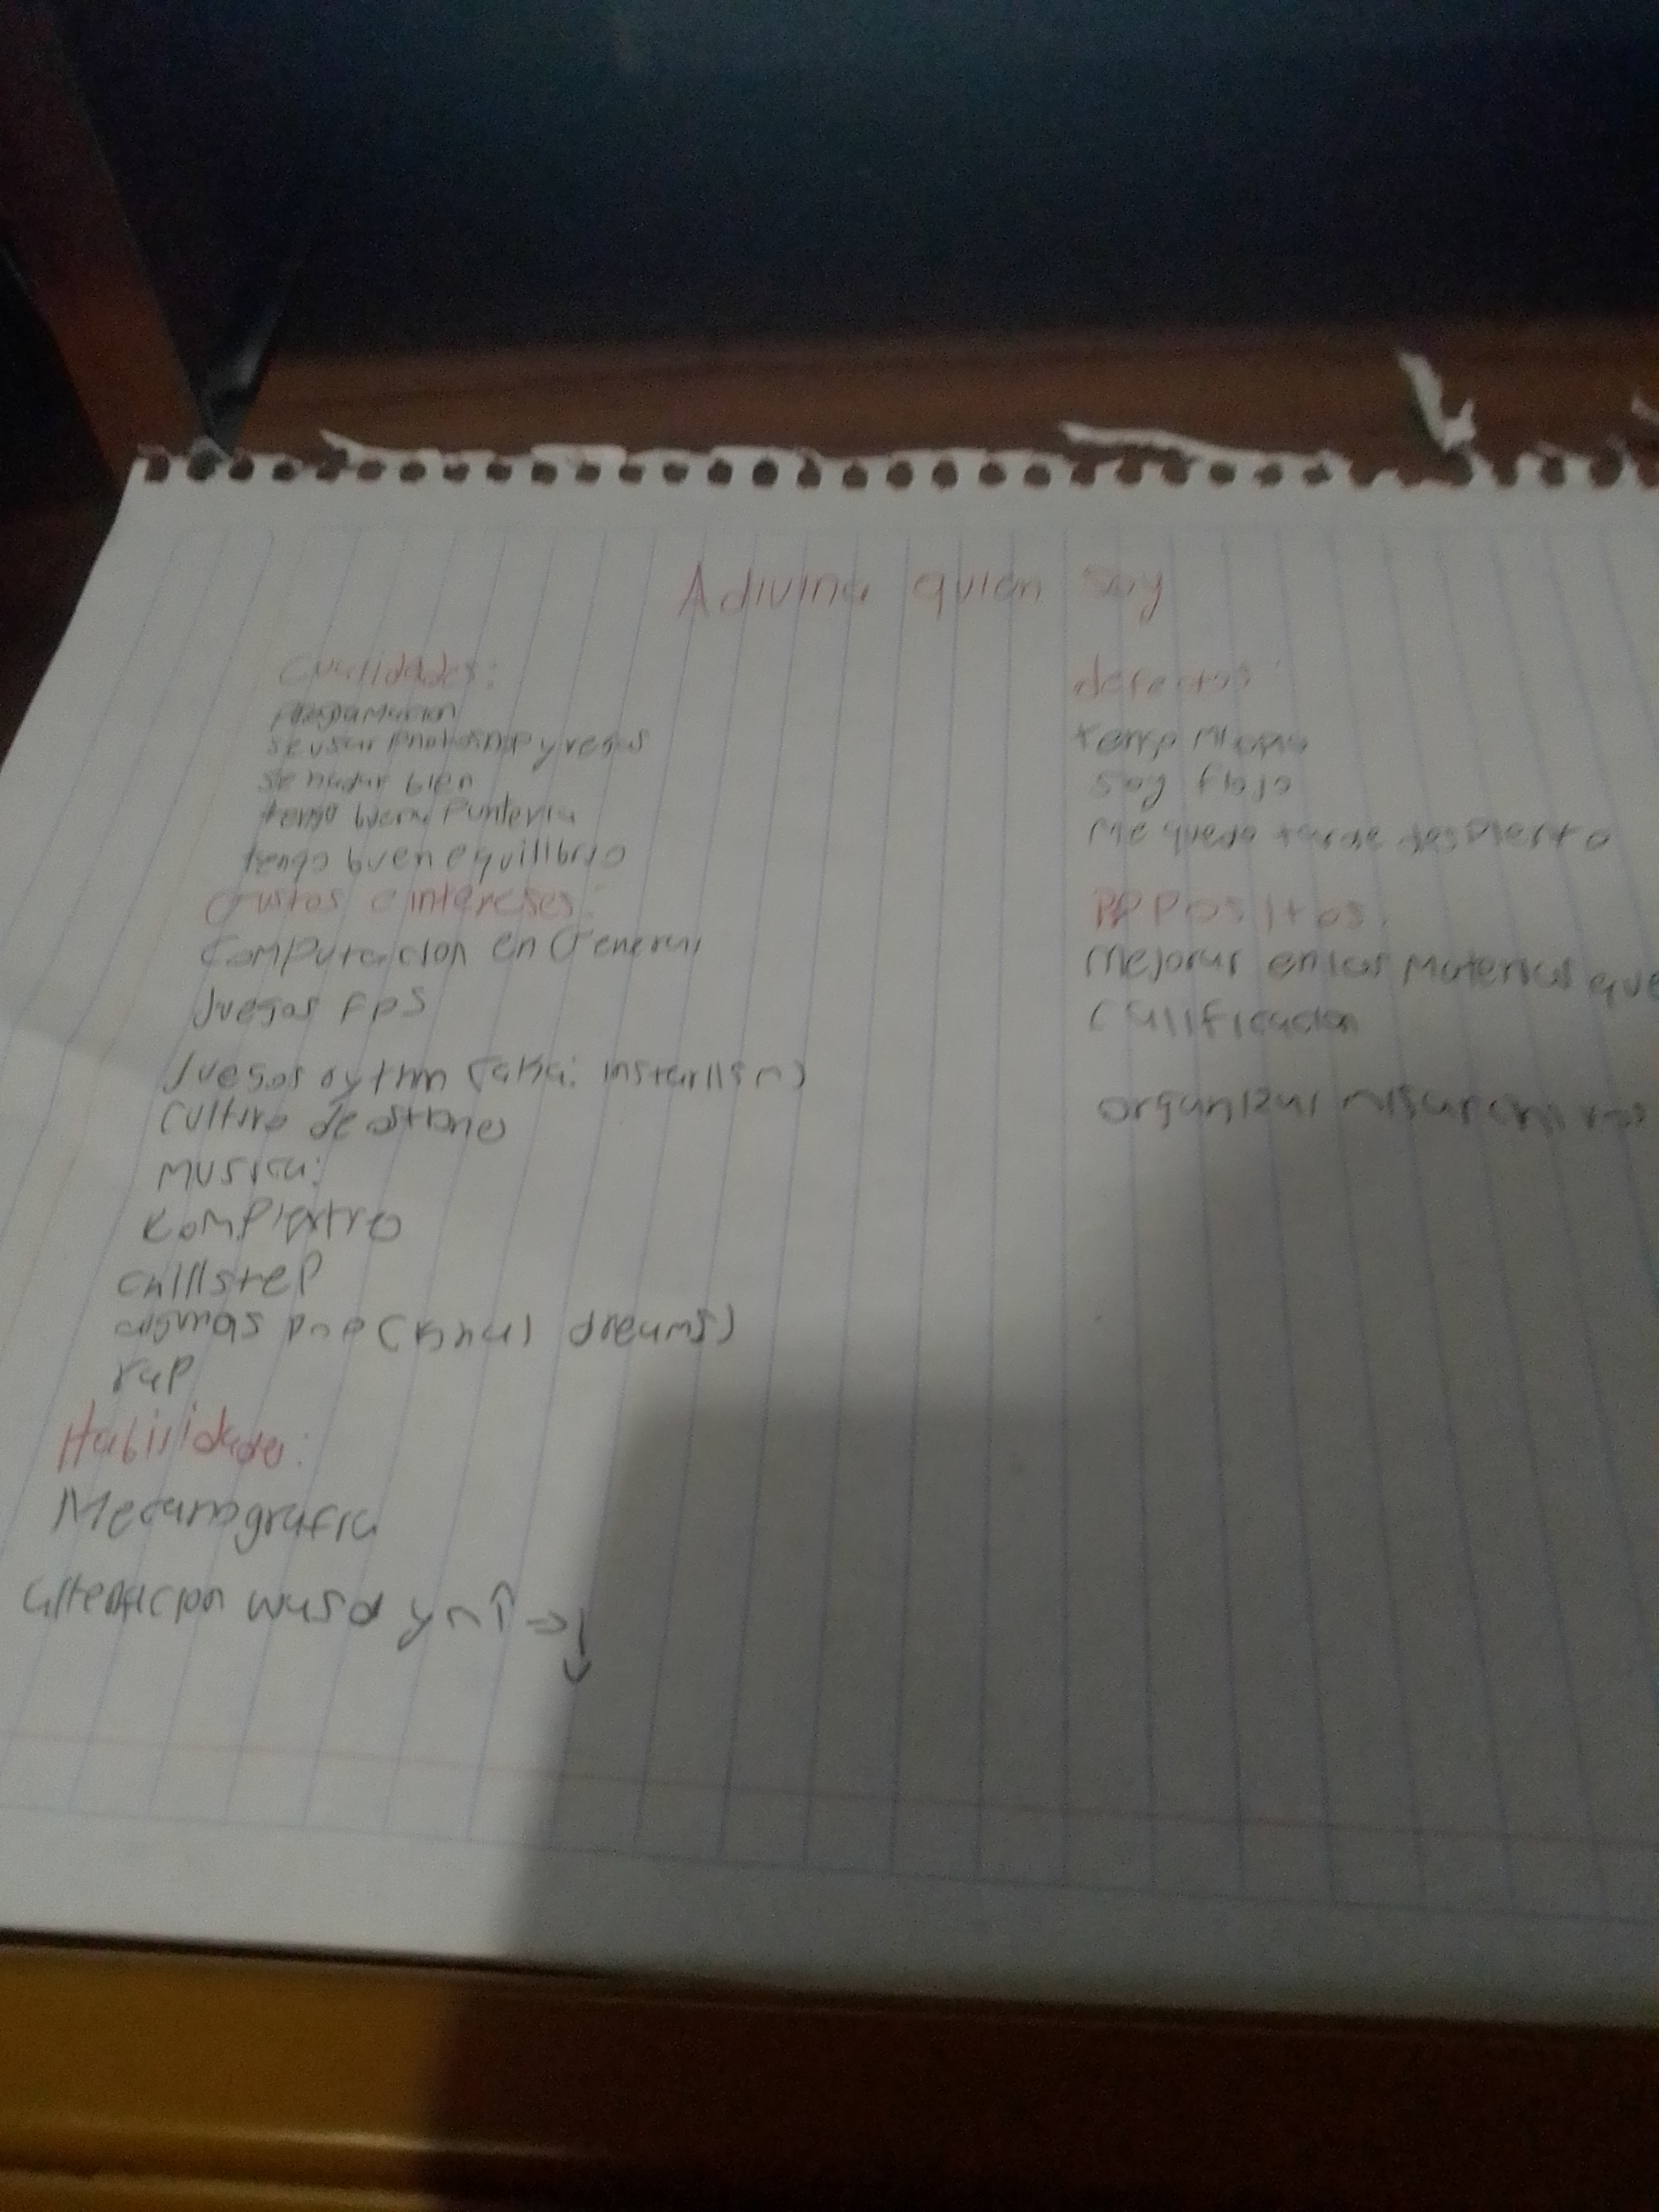 Adivina quien soy
Cualidades:
programacion
se usar photoshop y vegas
se nadar bien
tengo buena punteria
tengo buen equilibrio
Gustos e intereses:
Computacion en General
Juegos FPS
Juegos rythm (aka:
Cultura de
musica:
chillstep
algunas pop ( dreams)
rap
Habilidades:
Mecanografia
alternacion wasd y ↑ → ↓
defectos:
tengo miopia
soy flojo
me quedo tarde despierto
PRPositos:
Mejorar en las materias que
calificacion
organizar mis